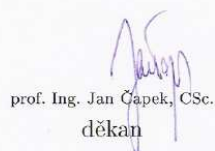 prof. Ing. Jan Čapek, CSc.
děkan